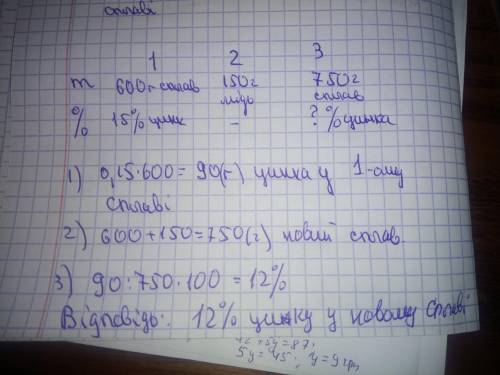 сплаві
1 2 3
m 600г сплав 150г мідь 750г сплав
% 15% цинк - ? % цинка
1) 0,15·600 = 90(г) цинка у 1-ому
сплаві
2) 600+150=750(г) новий сплав.
3) 90:750·100 = 12%
Відповідь: 12% цинку у новому сплаві
+5y=87,
5y=45; y=9 грн